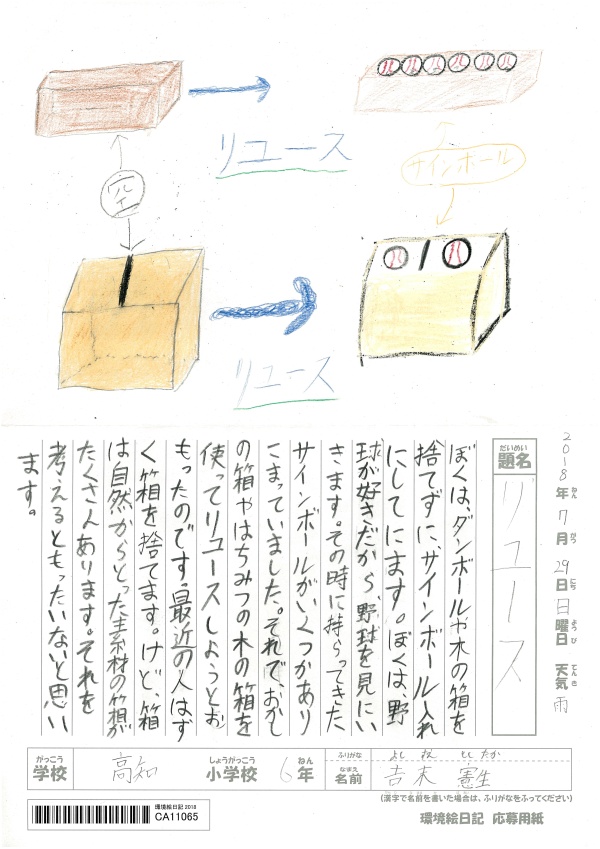 リユース
空
サインボール
リユース
2018年ねん7月がつ29日にち日曜日ようび 天気てんき 雨
だいめい
題名
リユース
ぼくは、ダンボールや木の箱を
捨てずに、サインボール入れ
にしてにます。ぼくは、野
球が好きだから、野球を見にい
きます。その時に持らってきた
サインボールがいくつかあり
こまっていました。それで、おかし
の箱やはちみつの木の箱を
使ってリユースしようとお
もったのです。最近の人はす
く箱を捨てます。けど、箱
は自然からとった素材の箱が
たくさんあります。それを
考えるともったいないと思い
ます。
がっこう
学校
高知
しょうがっこう
小学校
6年ねん
ふりがな
なまえ
名前
よし すえ
吉末
憲生
(漢字で名前を書いた場合は、ふりがなをふってください)
環境絵日記 2018
CA11065
環境絵日記 応募用紙